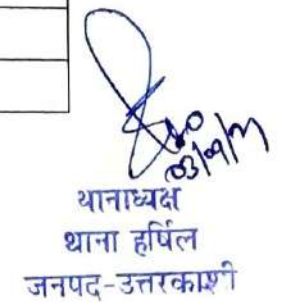 थानाध्यक्ष
थाना हर्षिल
जनपद-उत्तरकाशी